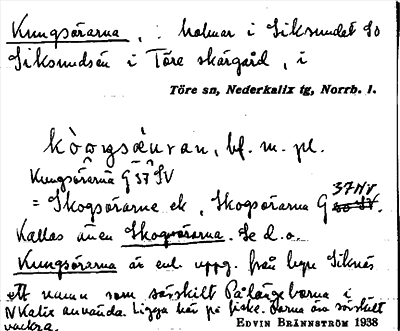 Kungsörarna, : holmar i Siksundet SO
Siksundsön i Töre skärgård, i
Töre sn, Nederkalix tg, Norrb. l.
kòoŋsǿuran, bf. m. pl.
Kungsörarna G 37 SV
= Skogsörarne ek, Skogsörarna G 37 NV
Kallas även Skogsörarna. Se d.o.
Kungsörarna är enl. uppg. från byn Siknäs
ett namn som särskilt Pålängeborna i
N Kalix använda. Ligga här på fiske. Öarna äro särskilt
vackra. EDVIN BRÄNNSTRÖM 1938